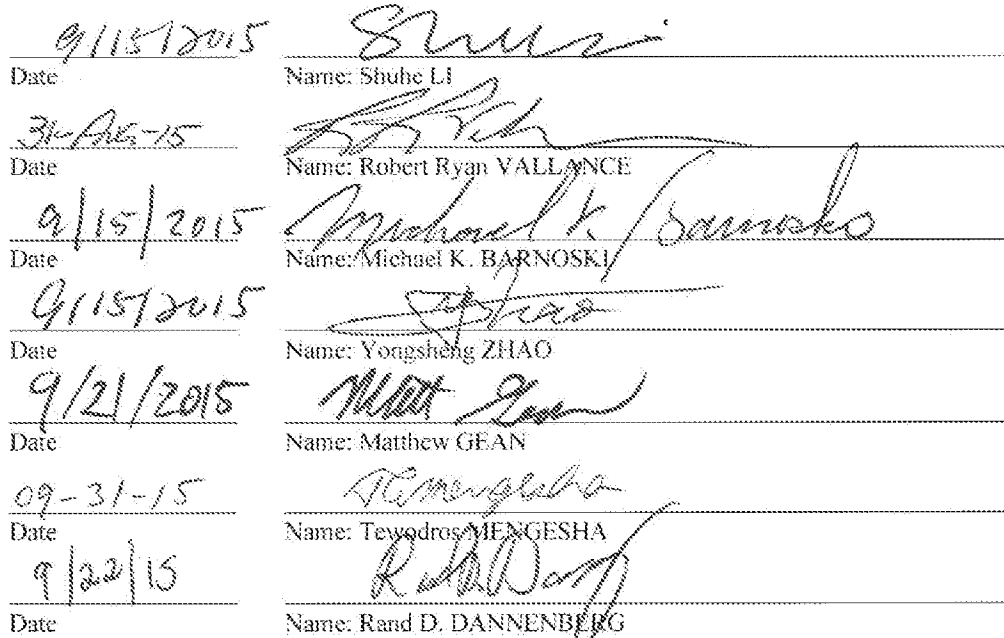 9/15/2015 Shuhe
Date Name: Shuhe LI
31-AUG-15
Date Name: Robert Ryan VALLANCE
9/15/2015 Michael K. Barnoski
Date Name: Michael K. BARNOSKI
9/15/2015 Zhao
Date Name: Yongsheng ZHAO
9/21/2015 Matt Gean
Date Name: Matthew GEAN
09-31-15 TMengesha
Date Name: Tewodros MENGESHA
9/22/15
Date Name: Rand D. DANNENBERG